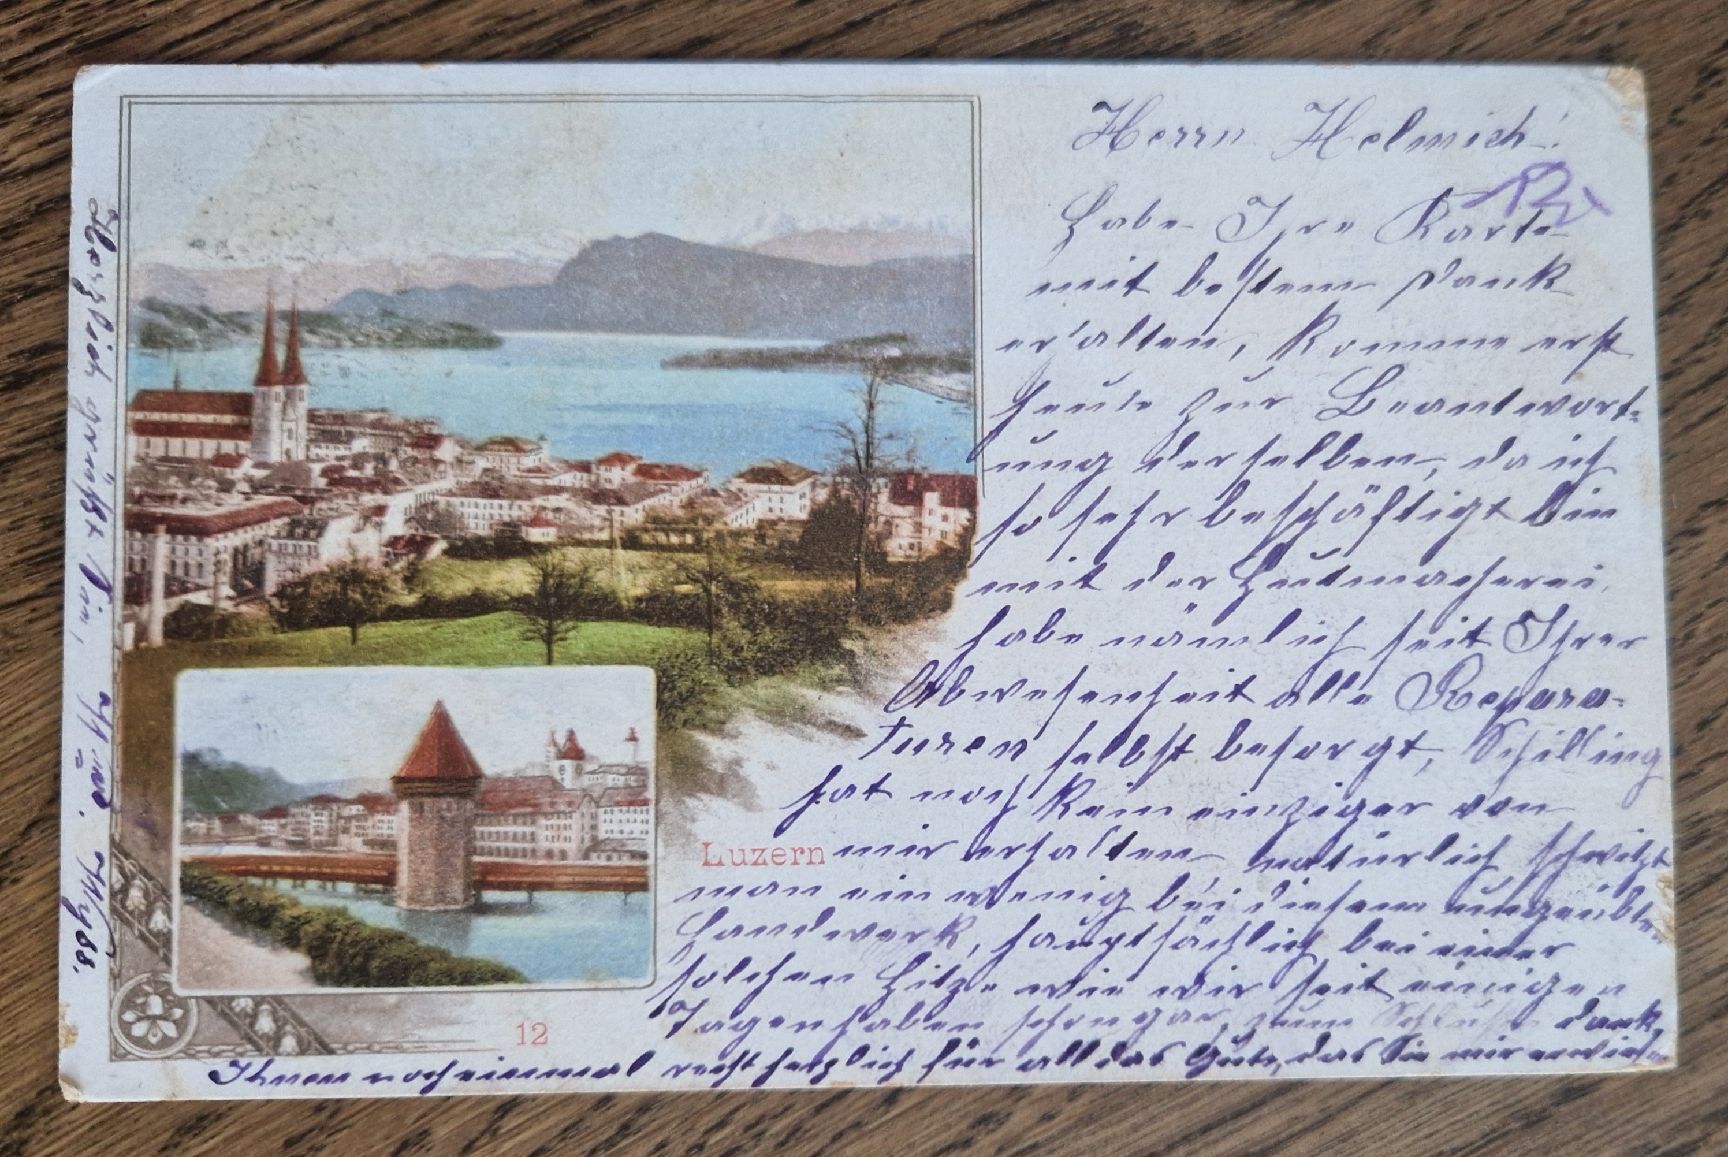 Herrn Helmich!
Habe Ihre Karte
mit bestem Dank
erhalten, komme erst
heute zur Beantwort-
ung derselben, da ich
so sehr beschäftigt bin
mit der Hutmacherei,
habe nämlich seit Ihrer
Abwesenheit alle Repara-
turen selbst besorgt, Schilling
hat noch kein einziger von
mir erhalten, natürlich schwitzt
man ein wenig bei diesem ungeübten
Handwerk, hauptsächlich bei einer
solchen Hitze wie wir seit einigen
Tagen haben schon gar, zum Schlusse dank
Ihnen noch einmal recht herzlich für all das Gute, das Sie mir erwiesen
Herzlich grüsst Sie, Wyss.
Luzern
12